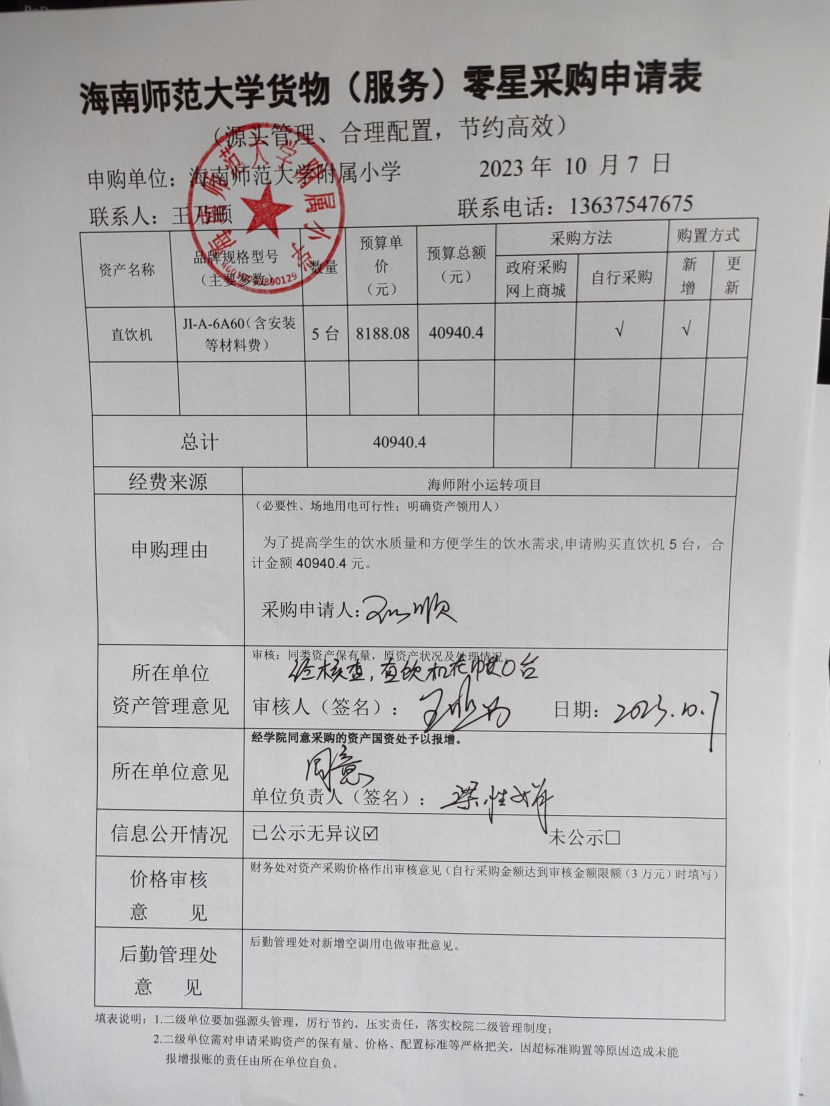 海南师范大学货物（服务）零星采购申请表
（源头管理、合理配置，节约高效）
申购单位：海南师范大学附属小学 2023 年 10 月 7 日
联系人：王 顺 联系电话：13637547675
海南师范大学附属小学
资产名称 品牌规格型号（主要参数） 数量 预算单价（元） 预算总额（元） 采购方法 购置方式
政府采购网上商城 自行采购 新增 更新
直饮机 JI-A-6A60（含安装等材料费） 5 台 8188.08 40940.4 √ √
总计 40940.4
经费来源 海师附小运转项目
申购理由
（必要性、场地用电可行性；明确资产领用人）
为了提高学生的饮水质量和方便学生的饮水需求,申请购买直饮机 5 台，合
计金额 40940.4 元。
采购申请人：
所在单位
资产管理意见
审核：同类资产保有量，原资产状况及处理情况
经核查，直饮机 0台
审核人（签名）： 日期：2023.10.7
所在单位意见
经学院同意采购的资产国资处予以报增。
同意
单位负责人（签名）：
信息公开情况 已公示无异议☑ 未公示□
价格审核
意 见
财务处对资产采购价格作出审核意见（自行采购金额达到审核金额限额（3 万元）时填写）
后勤管理处
意 见
后勤管理处对新增空调用电做审批意见。
填表说明：1.二级单位要加强源头管理，厉行节约，压实责任，落实校院二级管理制度；
2.二级单位需对申请采购资产的保有量、价格、配置标准等严格把关，因超标准购置等原因造成未能
报增报账的责任由所在单位自负。